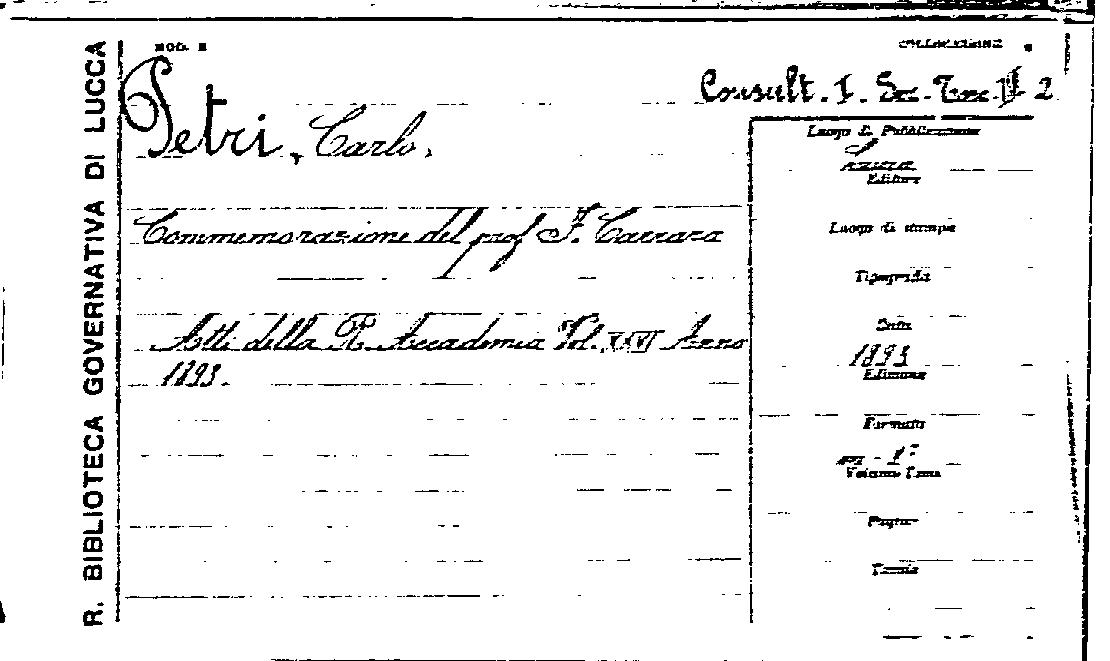 R. BIBLIOTECA GOVERNATIVA DI LUCCA
MOD. E
COLLOCAZIONE
Consult. I. Sez. Terz. 2
Petri, Carlo.
Commemorazione del prof F. Carrara
Atti della R. Accademia Vol. XXVI Anno
1893.
Luogo di Pubblicazione
Lucca
Editore
Luogo di stampa
Tipografia
Data
1893
Edizione
Formato
Volume Tomo
Pagine
Tavole